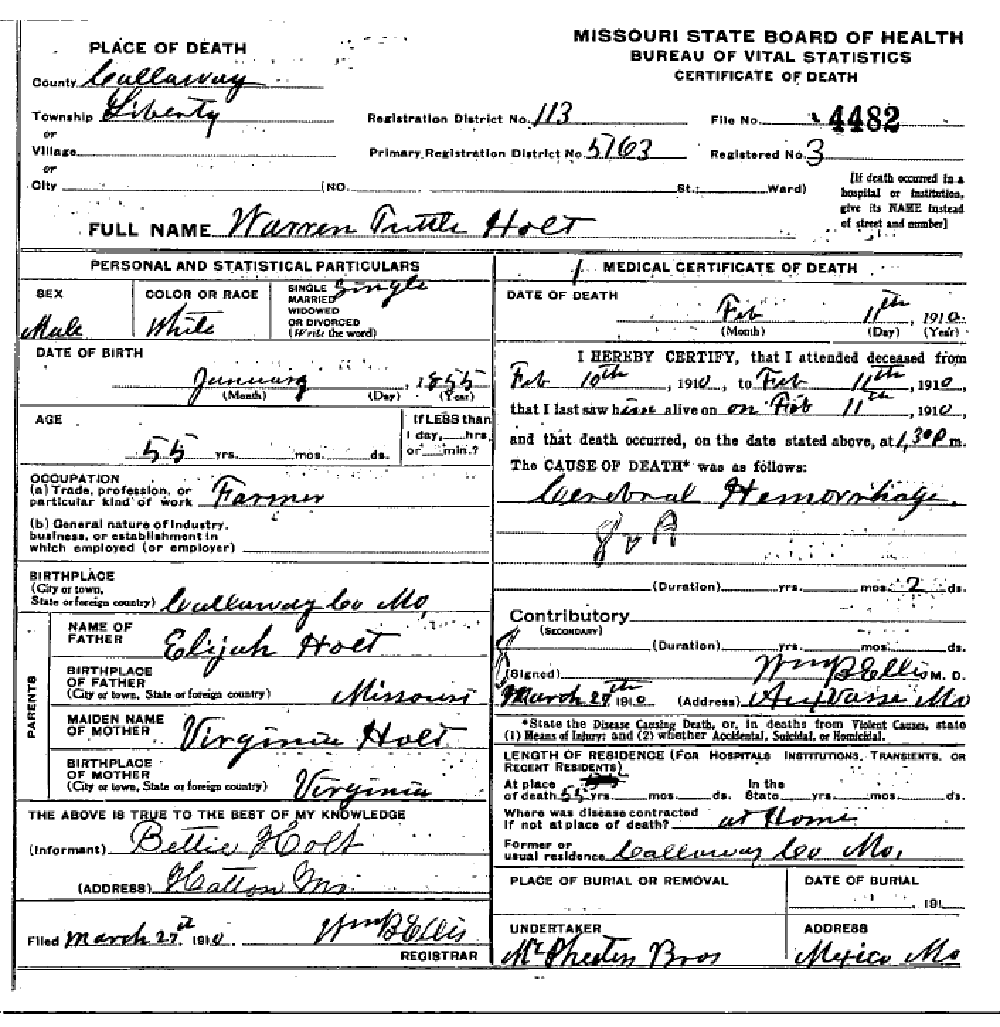 MISSOURI STATE BOARD OF HEALTH
BUREAU OF VITAL STATISTICS
CERTIFICATE OF DEATH
PLACE OF DEATH
County Callaway
Township Liberty
or
Village
or
City (NO. St.; Ward)
Registration District No. 113
Primary Registration District No. 5763
File No. 4482
Registered No. 3
[If death occurred in a
hospital or institution,
give its NAME instead
of street and number]
FULL NAME Warren Tuttle Holt
PERSONAL AND STATISTICAL PARTICULARS
SEX
Male
COLOR OR RACE
White
SINGLE
MARRIED
WIDOWED
OR DIVORCED
(Write the word)
Single
DATE OF BIRTH
January, 1855
(Month) (Day) (Year)
AGE
55 yrs. mos. ds.
If LESS than
1 day, hrs.
or min.?
OCCUPATION
(a) Trade, profession, or
particular kind of work Farmer
(b) General nature of industry,
business, or establishment in
which employed (or employer)
BIRTHPLACE
(City or town,
State or foreign country) Callaway Co Mo,
PARENTS
NAME OF
FATHER Elijah Holt
BIRTHPLACE
OF FATHER
(City or town, State or foreign country) Missouri
MAIDEN NAME
OF MOTHER Virginia Holt
BIRTHPLACE
OF MOTHER
(City or town, State or foreign country) Virginia
THE ABOVE IS TRUE TO THE BEST OF MY KNOWLEDGE
(Informant) Bettie Holt
(ADDRESS) Hatton Mo.
Filed March 27th 1910 Wm B Ellis
REGISTRAR
MEDICAL CERTIFICATE OF DEATH
DATE OF DEATH
Feb 11th, 1910.
(Month) (Day) (Year)
I HEREBY CERTIFY, that I attended deceased from
Feb 10th, 1910, to Feb 11th, 1910
that I last saw him alive on on Feb 11th, 1910
and that death occurred, on the date stated above, at 1,30 P m.
The CAUSE OF DEATH* was as follows:
Cerebral Hemorrhage
(Duration) yrs. mos. 2 ds.
Contributory
(SECONDARY)
(Duration) yrs. mos. ds.
(Signed) Wm B Ellis M. D.
March 27th 1910 (Address) Auxvasse Mo
*State the Disease Causing Death, or, in deaths from Violent Causes, state
(1) Means of Injury; and (2) whether Accidental, Suicidal, or Homicidal.
LENGTH OF RESIDENCE (FOR HOSPITALS INSTITUTIONS, TRANSIENTS, OR
RECENT RESIDENTS)
At place
of death 55 yrs. mos. ds.
In the
State yrs. mos. ds.
Where was disease contracted
if not at place of death? at Home
Former or
usual residence Callaway Co Mo,
PLACE OF BURIAL OR REMOVAL
DATE OF BURIAL
191
UNDERTAKER
Bros
ADDRESS
Mexico Mo